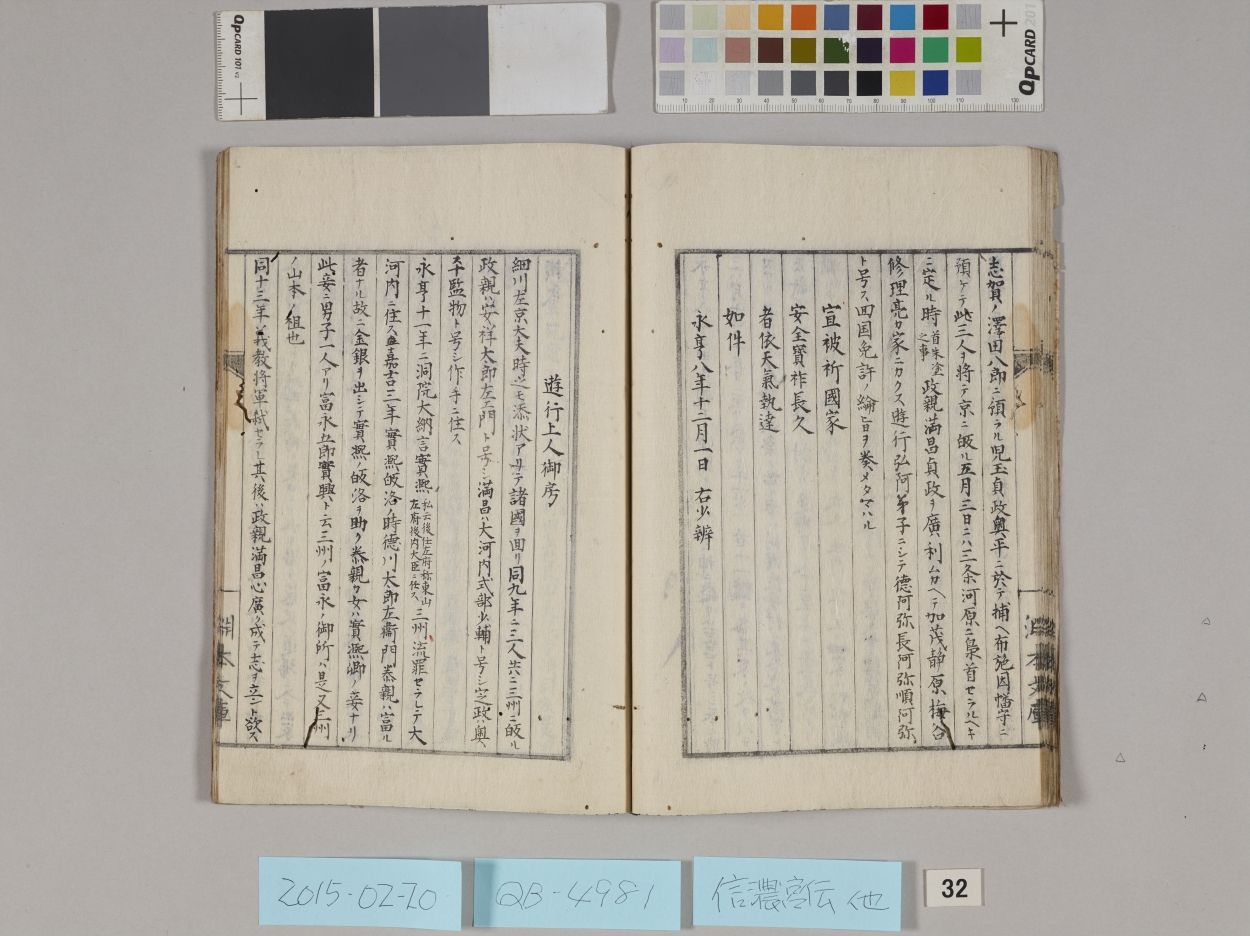 QPCARD 101 v2
QPCARD 201
10 20 30 40 50 60 70 80 90 100 110 130
志賀ノ澤田八郎ニ預ラル児玉貞政奥平ニ於テ捕ヘ布施因幡守ニ
預ケテ此三人ヲ将テ京ニ皈ル五月三日ニハ三条河原ニ梟首セラルヘキ
ニ定ル時首朱塗之事政親満昌貞政ヲ廣利ムカヘテ加茂静原梅谷
修理亮カ家ニカクス遊行弘阿弟子ニシテ徳阿弥長阿弥順阿弥
ト号ス回国免許ノ綸旨ヲ奏メタマハル
宜被祈國家
安全寳祚長久
者依天氣執達
如件
永享八年十二月一日 右少辨
遊行上人御房
細川左京大夫時之モ添状アリテ諸國ヲ回リ同九年ニ三人共ニ三州ニ皈ル
政親ハ安祥太郎左エ門ト号シ満昌ハ大河内式部少輔ト号シ定政ハ奥
平監物ト号シ作手ニ住ス
永享十一年ニ洞院大納言實熈私云後任左府称東山左府後内大臣ニ任ス三州ニ流罪セラレテ大
河内ニ住ス嘉吉三年實熈皈洛ノ時徳川太郎左衛門泰親ハ富ル
者ナル故ニ金銀ヲ出シテ實熈ノ皈洛ヲ助ク泰親カ女ハ實熈卿ノ妾ナリ
此妾ニ男子一人アリ富永五郎實興ト云三州ノ富永ノ御所ハ是又三州
ノ山本ノ組也
同十三年ニ義教将軍弑セラレ其後ハ政親満昌心廣ク成テ志ヲ立ント欲ス
淵本文庫
淵本文庫
2015-02-20
QB-4981
信濃宮伝 他
32